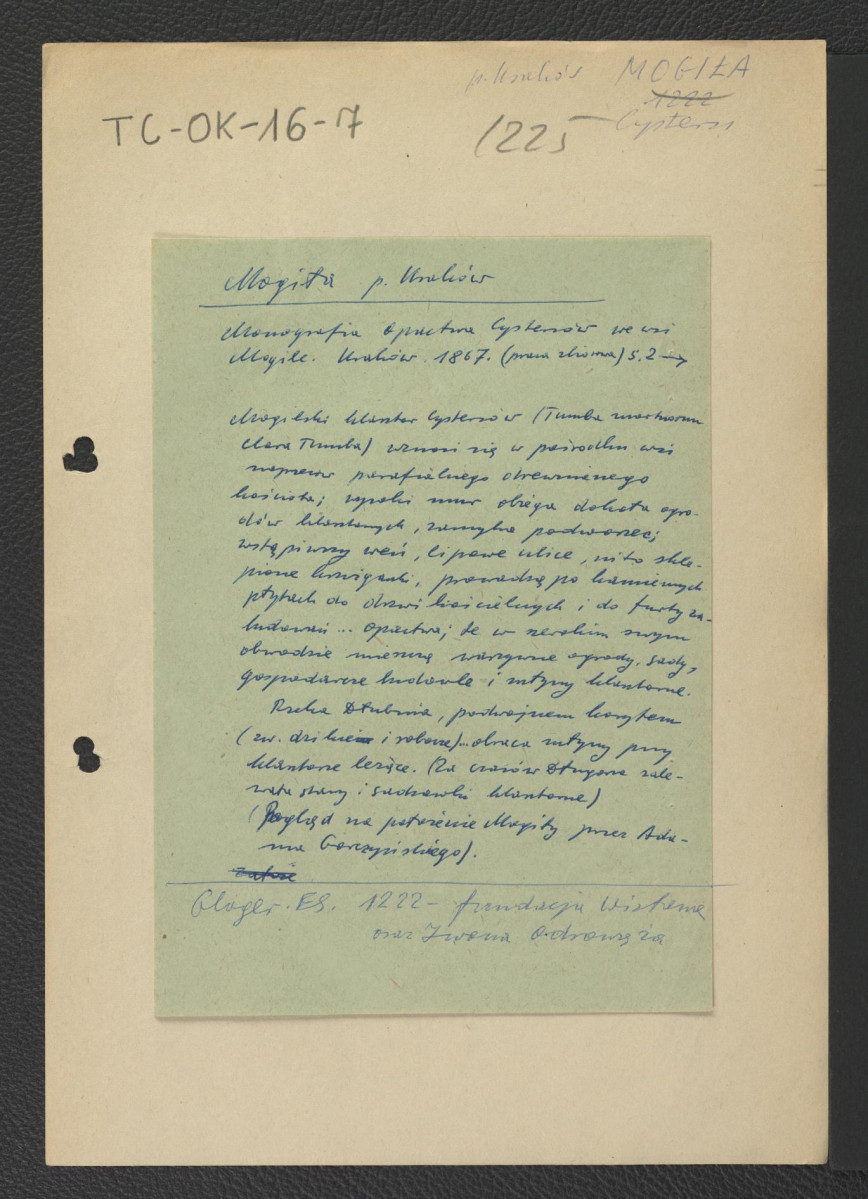 p. Kraków MOGIŁA
1222
Cystersi
TC-OK-16-7
1225
Mogiła p. Kraków
Monografia Opactwa Cystersów we wsi
Mogile. Kraków. 1867. (praca zbiorowa) s. 2 →
Mogilski klasztor Cystersów (Tumba mortuorum
Clara Tumba) wznosi się w pośrodku wsi
naprzeciw parafialnego drewnianego
kościoła; wysoki mur obiega dokoła ogro-
dów klasztornych, zamyka podworzec;
wstąpiwszy weń, lipowe ulice, nito skle-
pione krużganki, prowadzą po kamiennych
płytach do drzwi kościelnych i do furty za-
budowań... opactwa; te w szerokim swym
obwodzie mieszczą warzywne ogrody, sady,
gospodarcze budowle i młyny klasztorne.
Rzeka Dłubnia, podwójnem korytem
(zw. dzikie i robocze)... obraca młyny przy
klasztorze leżące. (Za czasów Długosza zale-
wała stawy i sadzawki klasztorne)
(Pogląd na położenie Mogiły przez Ada-
ma Gorczyńskiego).
Gloger. ES. 1222 - fundacja Wisława
oraz Iwona Odrowąża